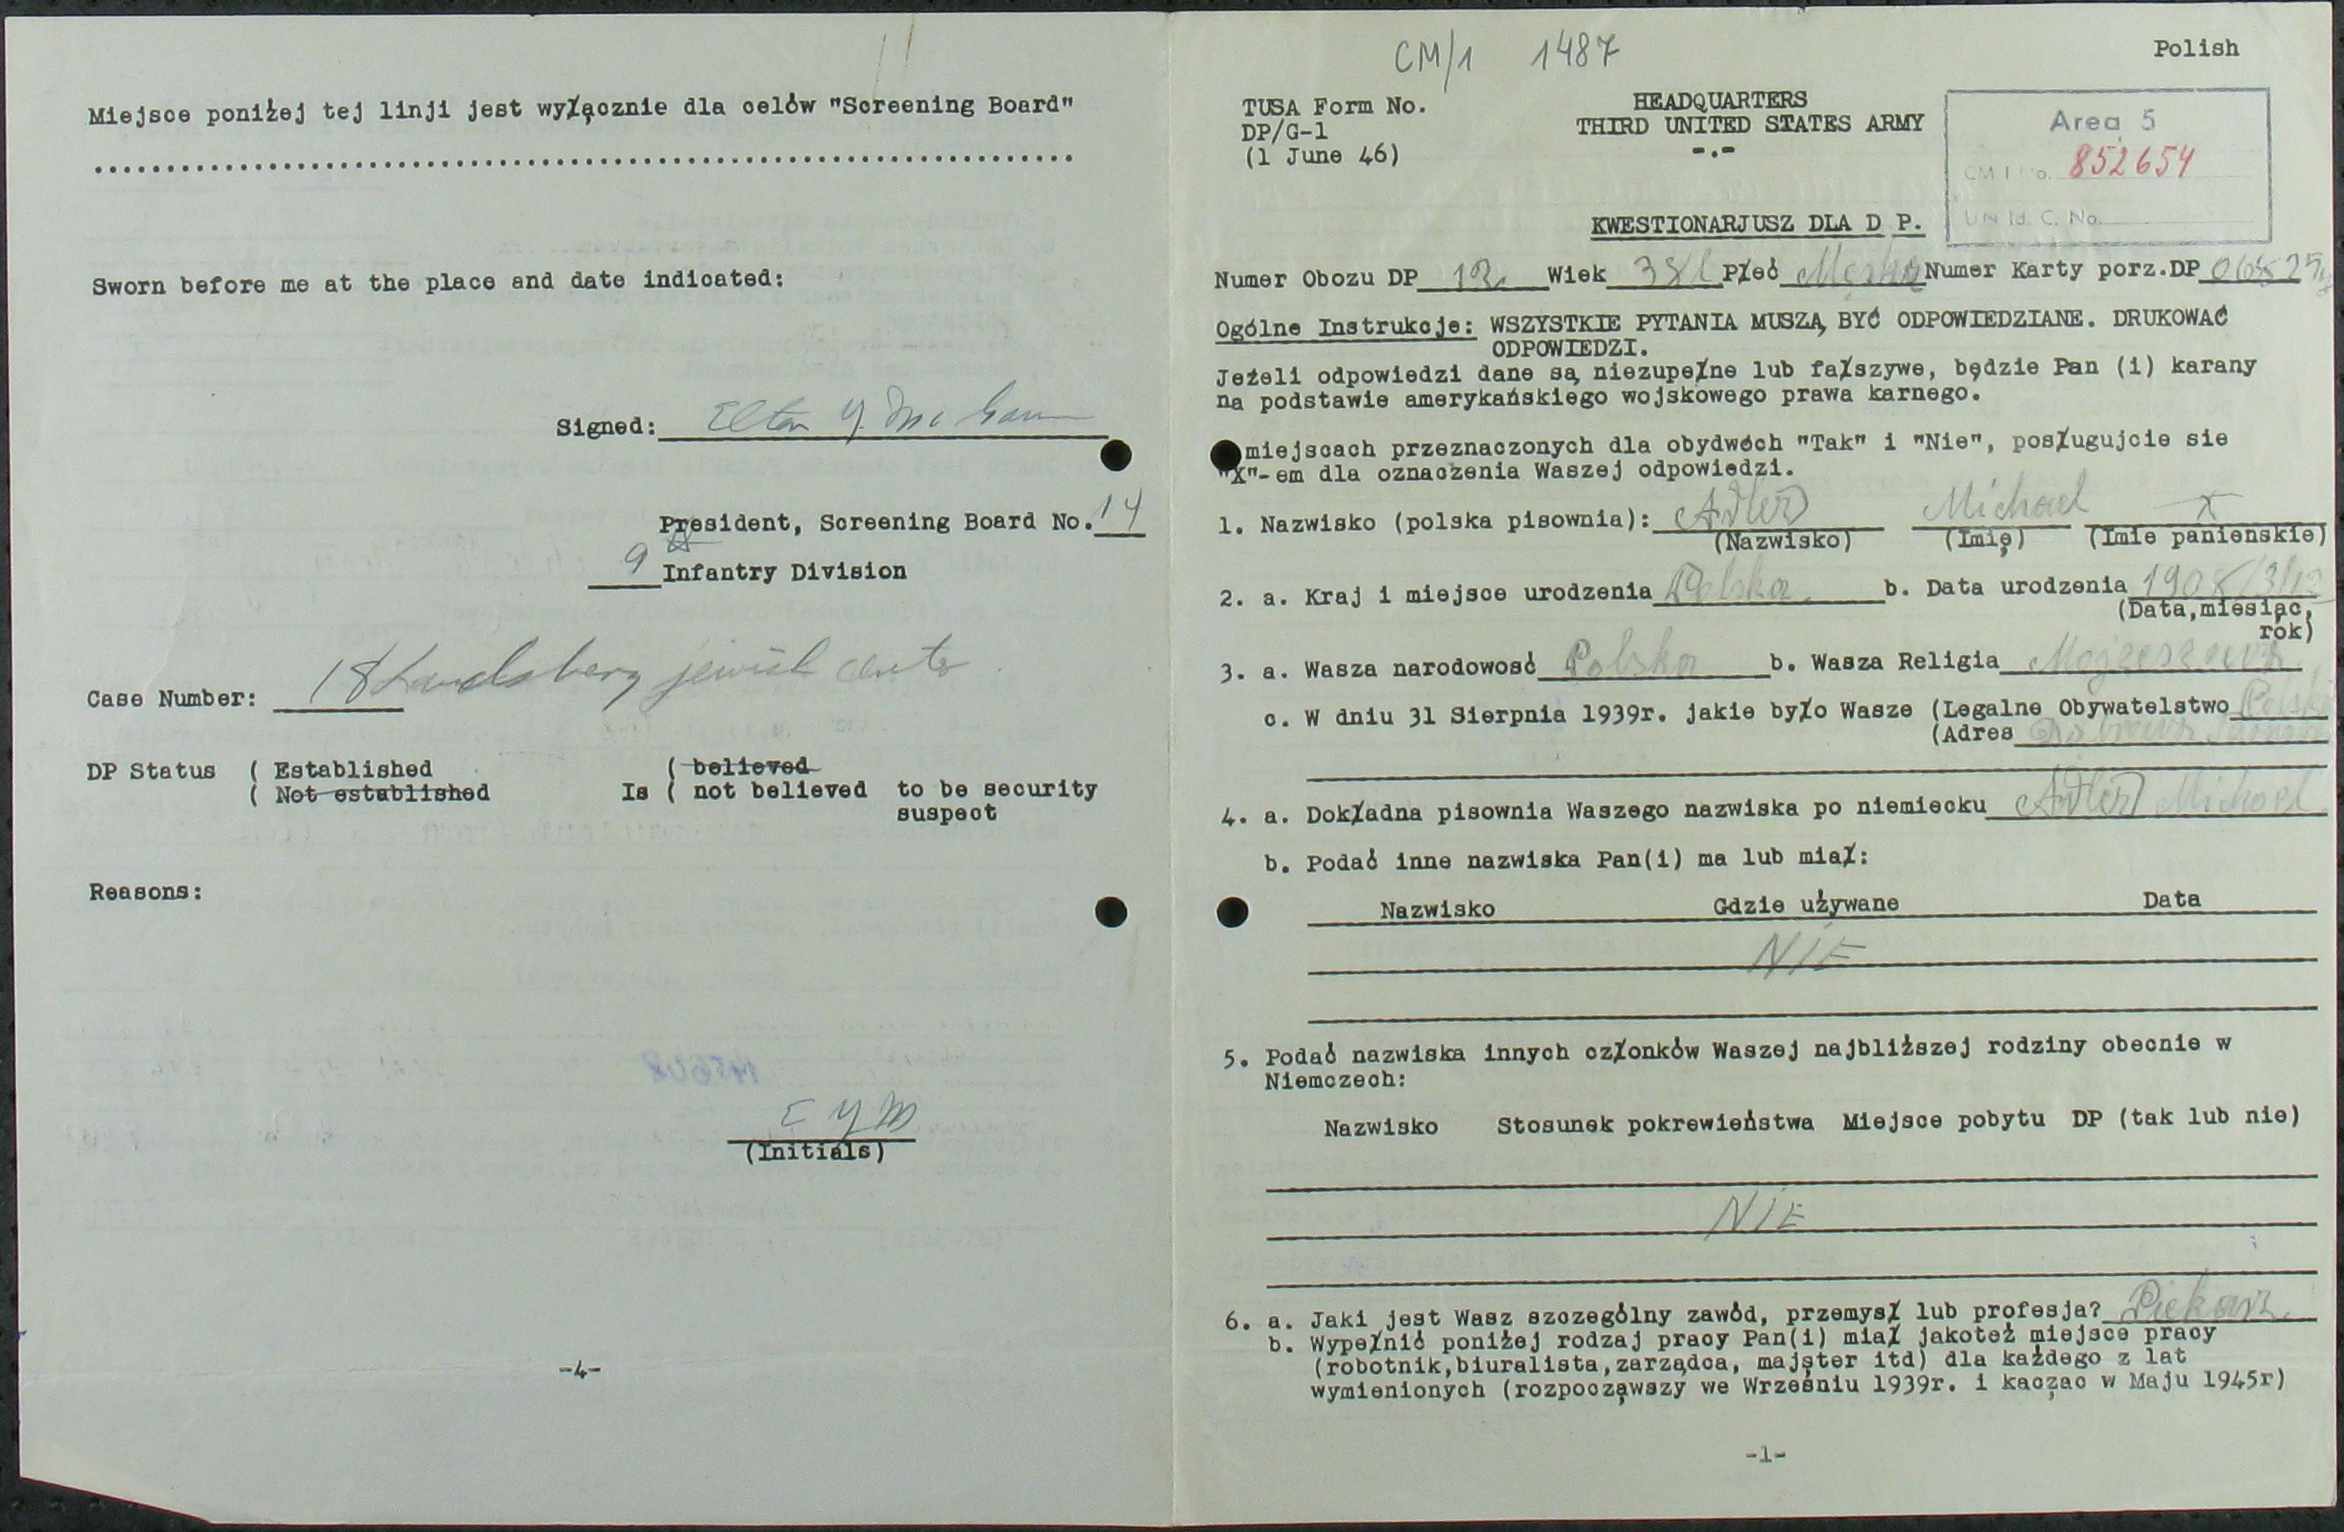 Miejsce poniżej tej linji jest wyłącznie dla celów "Screening Board"
Sworn before me at the place and date indicated:
Signed:
President, Screening Board No. 14
9 Infantry Division
Case Number: 18 Landsberg jewish center
DP Status ( Established ( believed
( Not established Is ( not believed to be security
suspect
Reasons:
E Y M
(Initials)
-4-
CM/1 1487
Polish
TUSA Form No.
DP/G-1
(1 June 46)
HEADQUARTERS
THIRD UNITED STATES ARMY
-.-
Area 5
CM 1 No. 852654
UN Id. C. No.
KWESTIONARJUSZ DLA D P.
Numer Obozu DP 12 Wiek 38 l Płeć Męska Numer Karty porz.DP
Ogólne Instrukcje: WSZYSTKIE PYTANIA MUSZĄ BYĆ ODPOWIEDZIANE. DRUKOWAĆ
ODPOWIEDZI.
Jeżeli odpowiedzi dane są niezupełne lub fałszywe, będzie Pan (i) karany
na podstawie amerykańskiego wojskowego prawa karnego.
miejscach przeznaczonych dla obydwóch "Tak" i "Nie", posługujcie sie
"X"-em dla oznaczenia Waszej odpowiedzi.
1. Nazwisko (polska pisownia): Adler Michael X
(Nazwisko) (Imię) (Imie panienskie)
2. a. Kraj i miejsce urodzenia Polska. b. Data urodzenia 1908/3/12
(Data,miesiąc,
rók)
3. a. Wasza narodowość Polska b. Wasza Religia Mojzeszowa
c. W dniu 31 Sierpnia 1939r. jakie było Wasze (Legalne Obywatelstwo Polskie
(Adres
4. a. Dokładna pisownia Waszego nazwiska po niemiecku Adler Michael
b. Podać inne nazwiska Pan(i) ma lub miał:
Nazwisko Gdzie używane Data
NIE
5. Podać nazwiska innych członków Waszej najbliższej rodziny obecnie w
Niemczech:
Nazwisko Stosunek pokrewieństwa Miejsce pobytu DP (tak lub nie)
NIE
6. a. Jaki jest Wasz szczególny zawód, przemysł lub profesja? Piekarz.
b. Wypełnić poniżej rodzaj pracy Pan(i) miał jakoteż miejsce pracy
(robotnik,biuralista,zarządca, majster itd) dla każdego z lat
wymienionych (rozpocząwszy we Wrześniu 1939r. i kacząc w Maju 1945r)
-1-